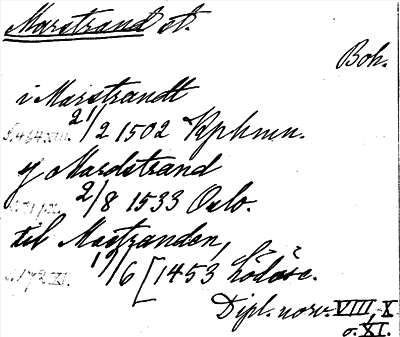 Marstrand st.
Boh.
i Marstrandt
s. 464 XIII. 21/2 1502 Kphmn.
y Mardstrand
2/8 1533 Oslo.
til Mastranden,
s. 172 XI. 19/6 [1453 Lödöse.
Dipl. norv. VIII, X
o. XI.